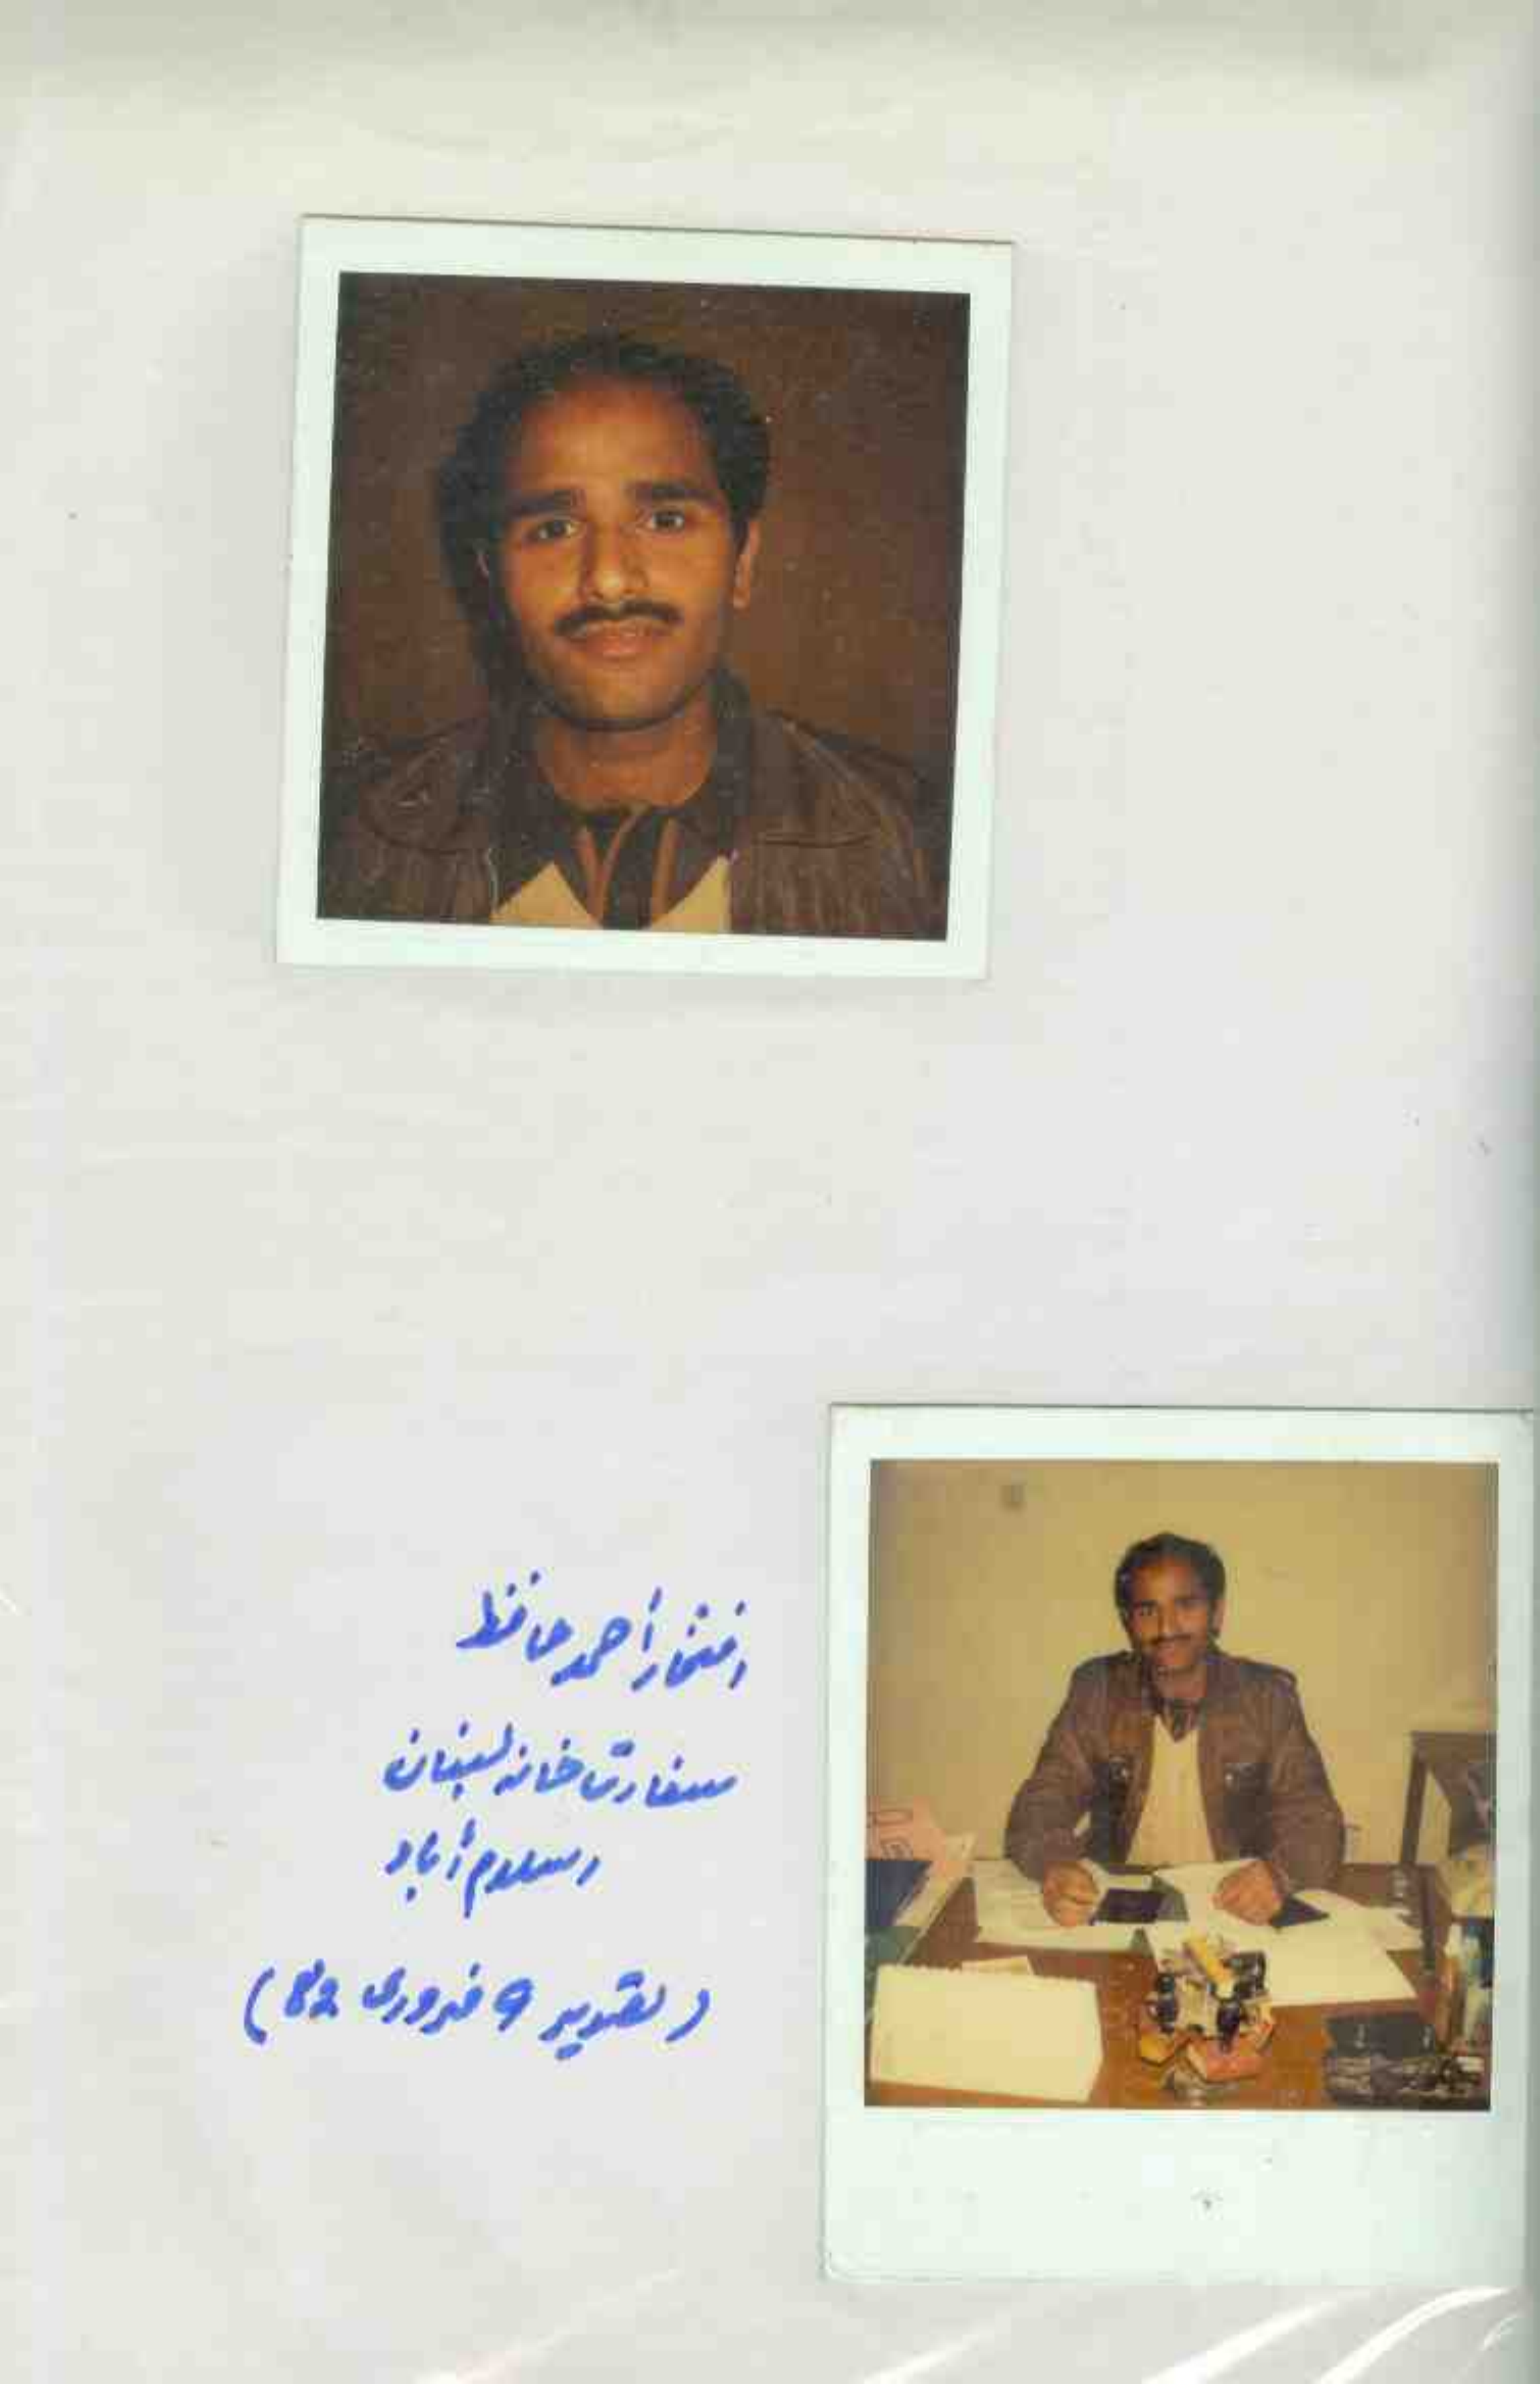 افتخار أحمد حافظ
سفارت خانہ لبنان
اسلام آباد
(تصویر 9 فروری 82)